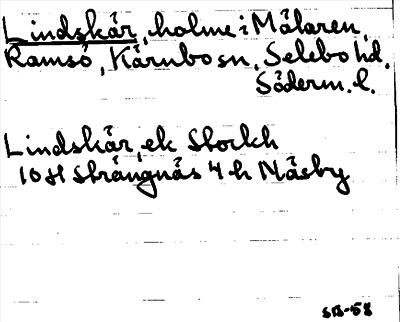 Lindskär, holme i Mälaren,
Ramsö, Kärnbo sn, Selebo hd.
Söderm. l.
Lindskär, ek Stockh
10 H Strängnäs 4 h Näsby
SB-58